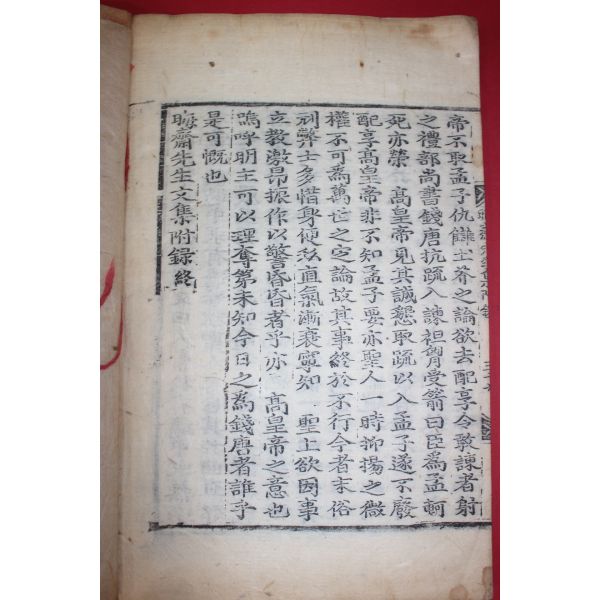 帝不取孟子仇讎土芥之論欲去配享令敢諫者射
之禮部尚書錢唐抗疏入諫袒胷受箭曰臣爲孟軻
死亦榮 高皇帝見其誠懇取疏以入孟子遂不廢
配享高皇帝非不知孟子要亦聖人一時抑揚之微
權不可爲萬世之定論故其事終於不行今者末俗
刓弊士多惜身使法直氣漸衰寧知 聖上欲因事
立教激昂振作以警昏昏者乎亦 高皇帝之意也
嗚呼明主可以理奪第未知今日之爲錢唐者誰乎
是可慨也
晦齋先生文集附錄終